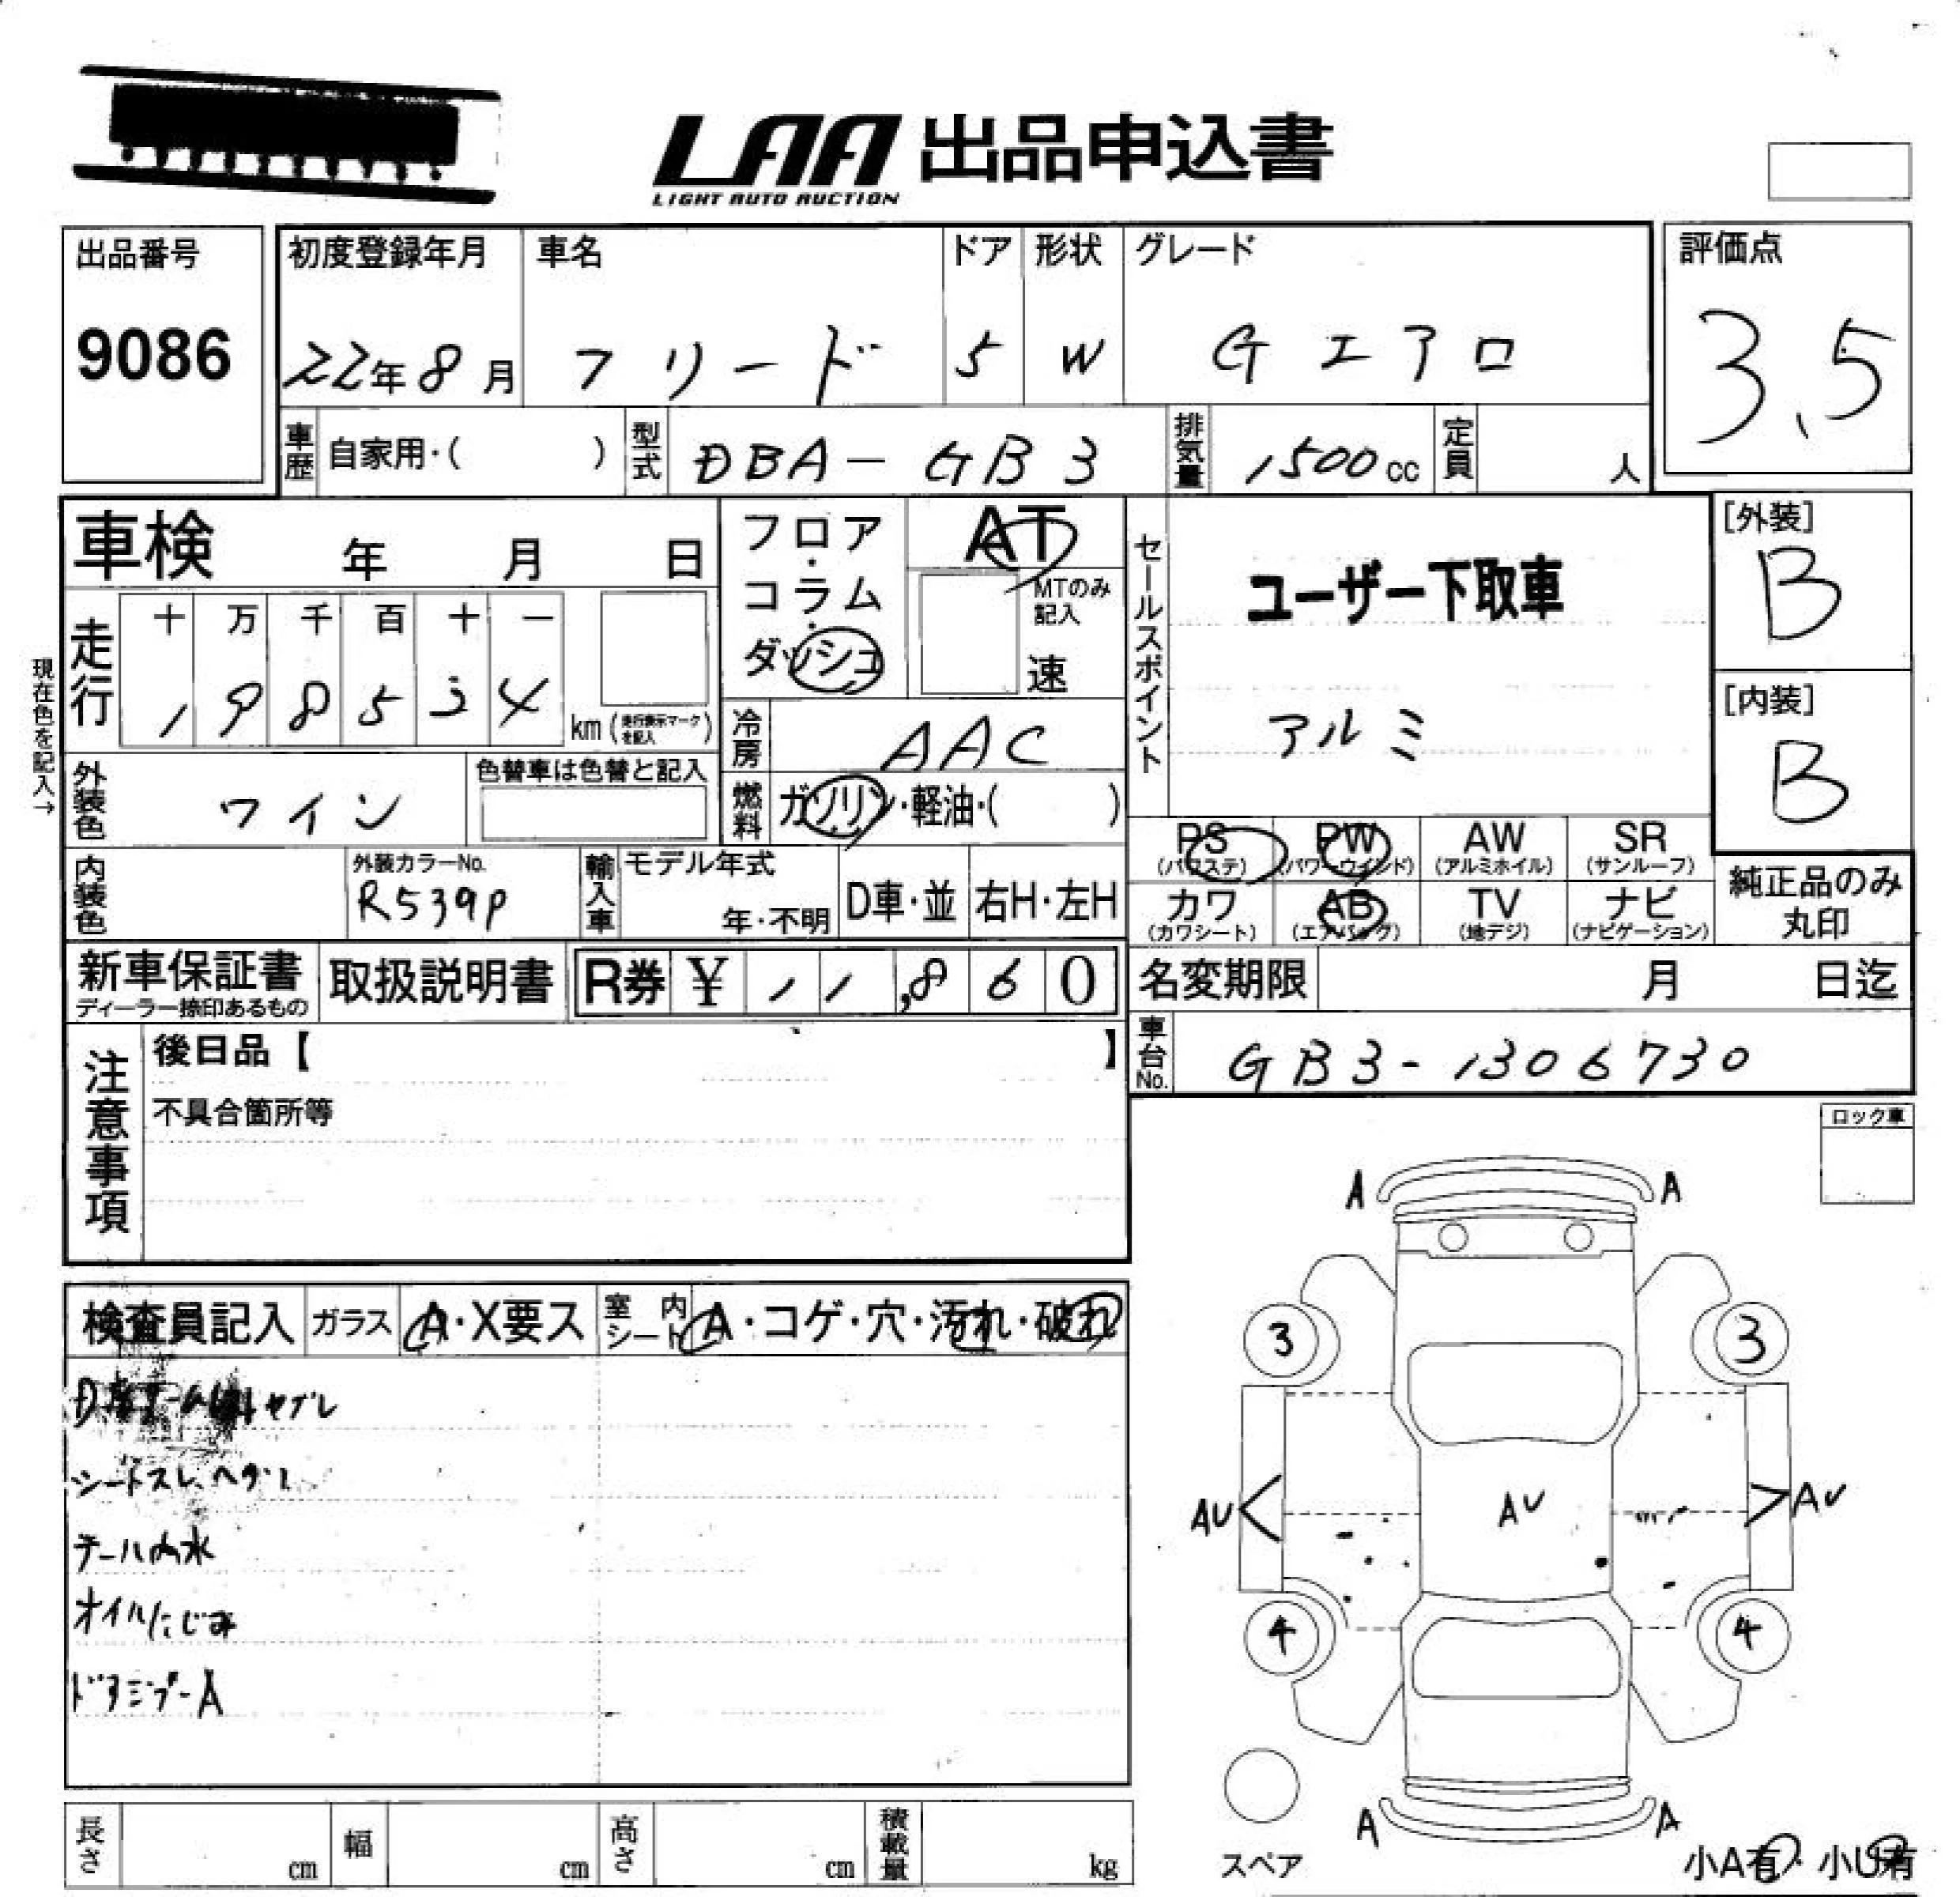 LAA 出品申込書
LIGHT AUTO AUCTION
出品番号
9086
初度登録年月
22年8月
車名
フリード
ドア
5
形状
W
グレード
Gエアロ
評価点
3.5
車歴 自家用・( )
型式 DBA-GB3
排気量 1500cc
定員 人
車検 年 月 日
フロア・コラム・ダッシュ
AT
MTのみ記入
速
セールスポイント
ユーザー下取車
アルミ
[外装]
B
[内装]
B
現在色を記入→
走行
十 万 千 百 十 一
1 9 8 5 4
km (走行表示マークを記入)
冷房 AAC
外装色 ワイン
色替車は色替と記入
燃料 ガソリン・軽油・( )
PS (パワステ)
PW (パワーウインド)
AW (アルミホイル)
SR (サンルーフ)
カワ (カワシート)
AB (エアバック)
TV (地デジ)
ナビ (ナビゲーション)
純正品のみ丸印
内装色
外装カラーNo.
R539P
輸入車
モデル年式
年・不明
D車・並
右H・左H
新車保証書
ディーラー捺印あるもの
取扱説明書
R券 ¥ 11,860
名変期限 月 日迄
車台No. GB3-1306730
注意事項
後日品【 】
不具合箇所等
ロック車
検査員記入
ガラス A・X要ス
室内シート A・コゲ・穴・汚れ・破れ
ヤブレ
シートスレ、ヘタリ
テール内水
オイルにじみ
ドアミラーA
A A
3 3
AU AU AU
4 4
A A
スペア
小A有・小U有
長さ cm
幅 cm
高さ cm
積載量 kg